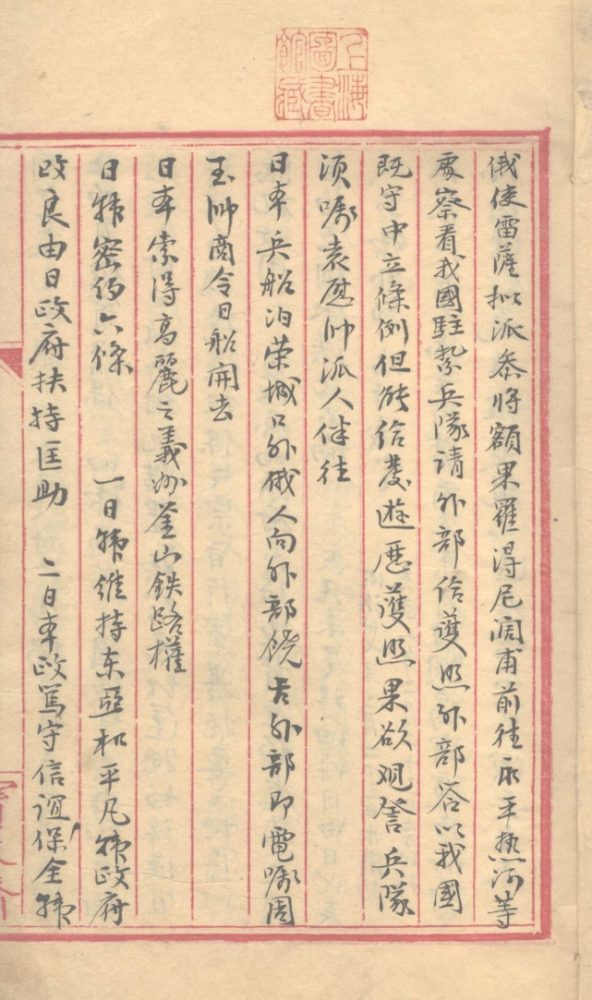 上海圖書館藏
俄使雷薩拟派叅將額果羅得尼澗甫前往永平热河等
處察看我國駐紮兵隊請外部给護照外部答以我國
既守中立條例但能给發遊歷護照果欲观誉兵隊
須嘱袁慰帅派人伴往
日本兵船泊荣城口外俄人向外部饶舌外部即電嘱周
玉帅商令日船開去
日本索得高麗之義州釜山鉄路權
日韩密约六條 一日韩维持东亞和平凡韩政府
改良由日政府扶持匡助 二日本政篤守信谊保全韩